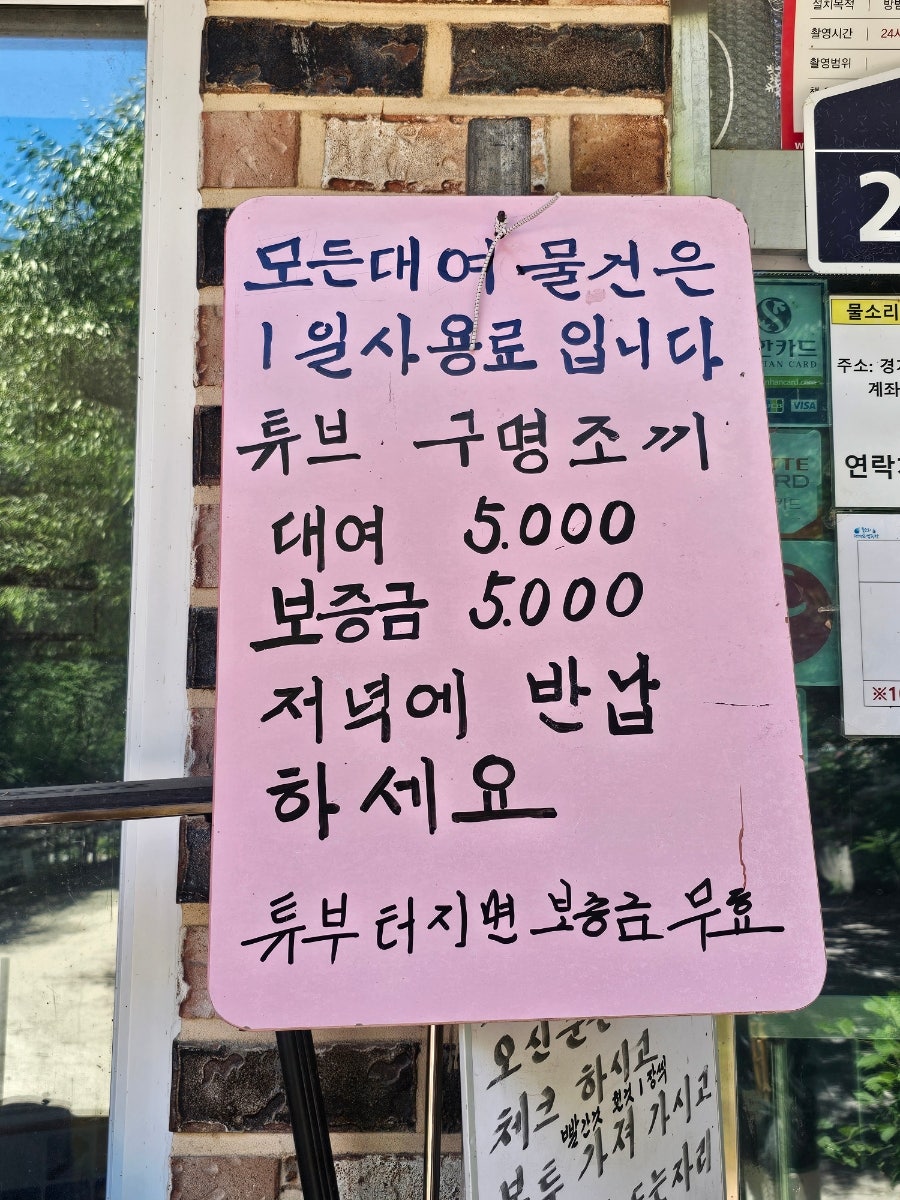 모든대여 물건은
1일사용료 입니다
튜브 구명조끼
대여 5.000
보증금 5.000
저녁에 반납
하세요
튜부 터지면 보증금 무효
오신분은
체크 하시고
빨간것 흰것 1장씩
봉투 가져 가시고
설치목적
촬영시간 24시
촬영범위
2
카드
VISA
물소리
주소: 경기
계좌
연락